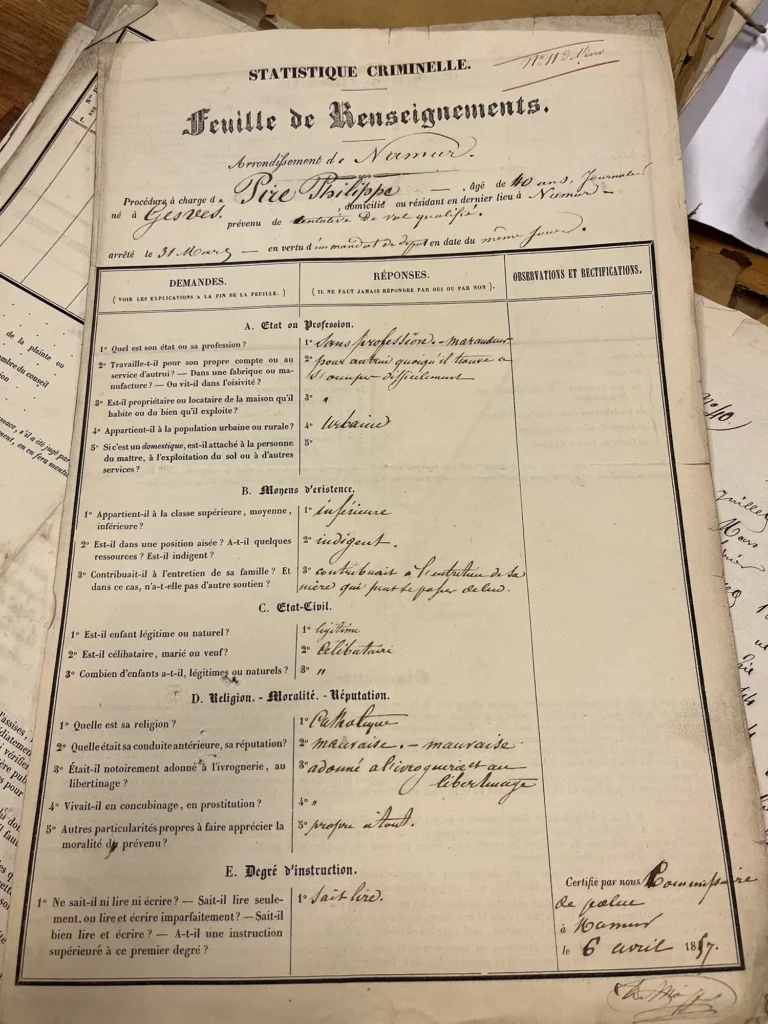 STATISTIQUE CRIMINELLE.
Feuille de Renseignements.
Arrondissement de Namur.
Procédure à charge de Pire Philippe, âgé de 40 ans, Journalier
né à Gesves. domicilié ou résidant en dernier lieu à Namur
prévenu de tentative de vol qualifié.
arrêté le 31 Mars en vertu d'un mandat de dépôt en date du même jour.
DEMANDES.
(VOIR LES EXPLICATIONS A LA FIN DE LA FEUILLE.)
RÉPONSES.
(IL NE FAUT JAMAIS RÉPONDRE PAR OUI OU PAR NON).
OBSERVATIONS ET RECTIFICATIONS.
A. Etat ou Profession.
1° Quel est son état ou sa profession?
1° Sans profession. - maraudeur
2° Travaille-t-il pour son propre compte ou au
service d'autrui? — Dans une fabrique ou ma-
nufacture? — Ou vit-il dans l'oisiveté?
2° pour autrui quoiqu'il trouve a
s'occuper difficilement
3° Est-il propriétaire ou locataire de la maison qu'il
habite ou du bien qu'il exploite?
3° "
4° Appartient-il à la population urbaine ou rurale?
4° Urbaine
5° Si c'est un domestique, est-il attaché à la personne
du maître, à l'exploitation du sol ou à d'autres
services?
5°
B. Moyens d'existence.
1° Appartient-il à la classe supérieure, moyenne,
inférieure?
1° inférieure
2° Est-il dans une position aisée? A-t-il quelques
ressources? Est-il indigent?
2° indigent.
3° Contribuait-il à l'entretien de sa famille? Et
dans ce cas, n'a-t-elle pas d'autre soutien?
3° contribuait a l'entretien de sa
mère qui peut se passer de lui.
C. Etat-Civil.
1° Est-il enfant légitime ou naturel?
1° légitime
2° Est-il célibataire, marié ou veuf?
2° Célibataire
3° Combien d'enfants a-t-il, légitimes ou naturels?
3° "
D. Religion. - Moralité. - Réputation.
1° Quelle est sa religion?
1° Catholique
2° Quelle était sa conduite antérieure, sa réputation?
2° mauvaise. - mauvaise
3° Était-il notoirement adonné à l'ivrognerie, au
libertinage?
3° adonné a l'ivrognerie et au
libertinage
4° Vivait-il en concubinage, en prostitution?
4° "
5° Autres particularités propres à faire apprécier la
moralité du prévenu?
5° propre à tout.
E. Degré d'instruction.
1° Ne sait-il ni lire ni écrire? — Sait-il lire seule-
ment, ou lire et écrire imparfaitement? — Sait-il
bien lire et écrire? — A-t-il une instruction
supérieure à ce premier degré?
1° Sait lire.
Certifié par nous Commissaire
de police
à Namur
le 6 avril 1857.
de la plainte ou
mbre du conseil
juillet
Mars